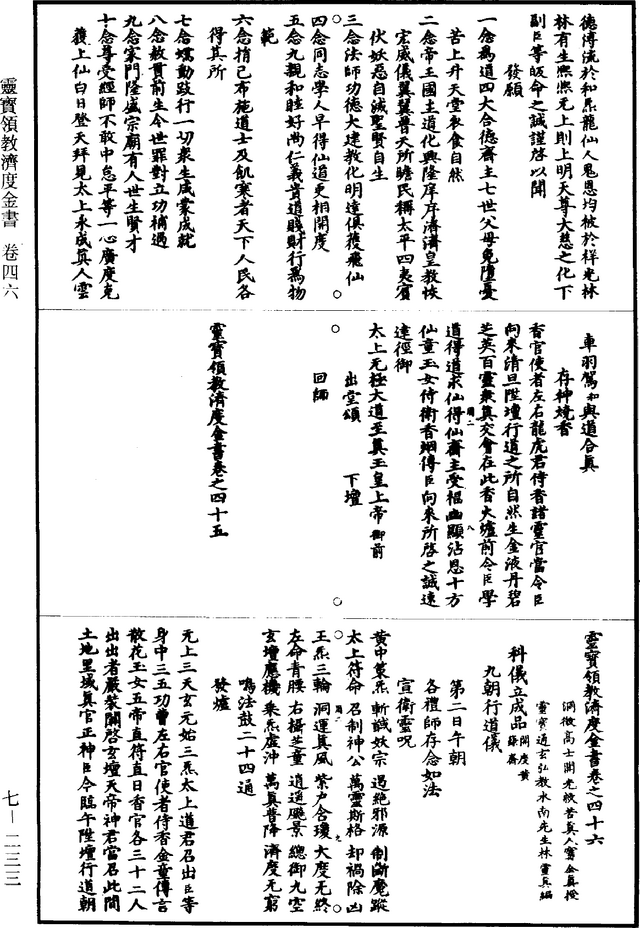 德溥流於和炁龍仙人鬼恩均被於祥光林
林有生熙熙无上則上明天尊大慈之化下
副臣等皈命之誠謹啓以聞
發願
一念爲道四大合德齋主七世父母免墮憂
苦上升天堂衣食自然
二念帝王國主道化興隆庠序濟濟皇教恢
宏威儀翼翼普天所瞻民稱太平四夷賓
伏妖惡自滅聖賢自生
三念法師功德大建教化明達俱獲飛仙
四念同志學人早得仙道更相開度
五念九親和睦好尚仁義貴道賤財行爲物
範
六念捎己布施道士及飢寒者天下人民各
得其所
七念蠕動跂行一切衆生咸蒙成就
八念敖貰前生今世罪對立功補過
九念家門隆盛宗廟有人世生賢才
十念尊受經師不敢中怠平等一心廣度克
獲上仙白日登天拜見太上永成眞人雲
車羽駕與道合眞
存神燒香
香官使者左右龍虎君侍香諸靈官當令臣
向來清旦陞壇行道之所自然生金液丹碧
芝英百靈衆眞交會在此香火爐前令臣學
道得道求仙得仙齋主受福幽顯沾恩十方
仙童玉女侍衛香烟傳臣向來所啓之誠速
達徑御
太上无極大道至眞玉皇上帝御前
出堂頌 下壇
回師
靈寶領教濟度金書卷之四十五
靈寶領教濟度金書卷之四十六
洞微高士開光救苦眞人甯全眞授
靈寶通玄弘教水南先生林靈眞編
科儀立成品開度黃籙齋
九朝行道儀
第二日午朝
各禮師存念如法
宣衛靈呪
黄中策炁 斬誡妖宗 遏絶邪源 制斷魔蹤
太上符命 召制神公 萬靈斯格 却禍除凶
王炁三輪 洞運眞風 紫戶含瓊 大度无終
左命青腰 右攝芝童 逍遥飈景 總御九空
玄壇應機 乘炁虛沖 萬眞普降 濟度无窮
鳴法鼓二十四通
發爐
无上三天玄元始三炁太上道君召出臣等
身中三五功曹左右官使者侍香金童傳言
散花玉女五帝直符直日香官各三十二人
出出者嚴裝關啓玄壇天帝神君當召此間
土地里域眞官正神臣今臨午陞壇行道朝
靈寶領教濟度金書 卷四六
七—二三三